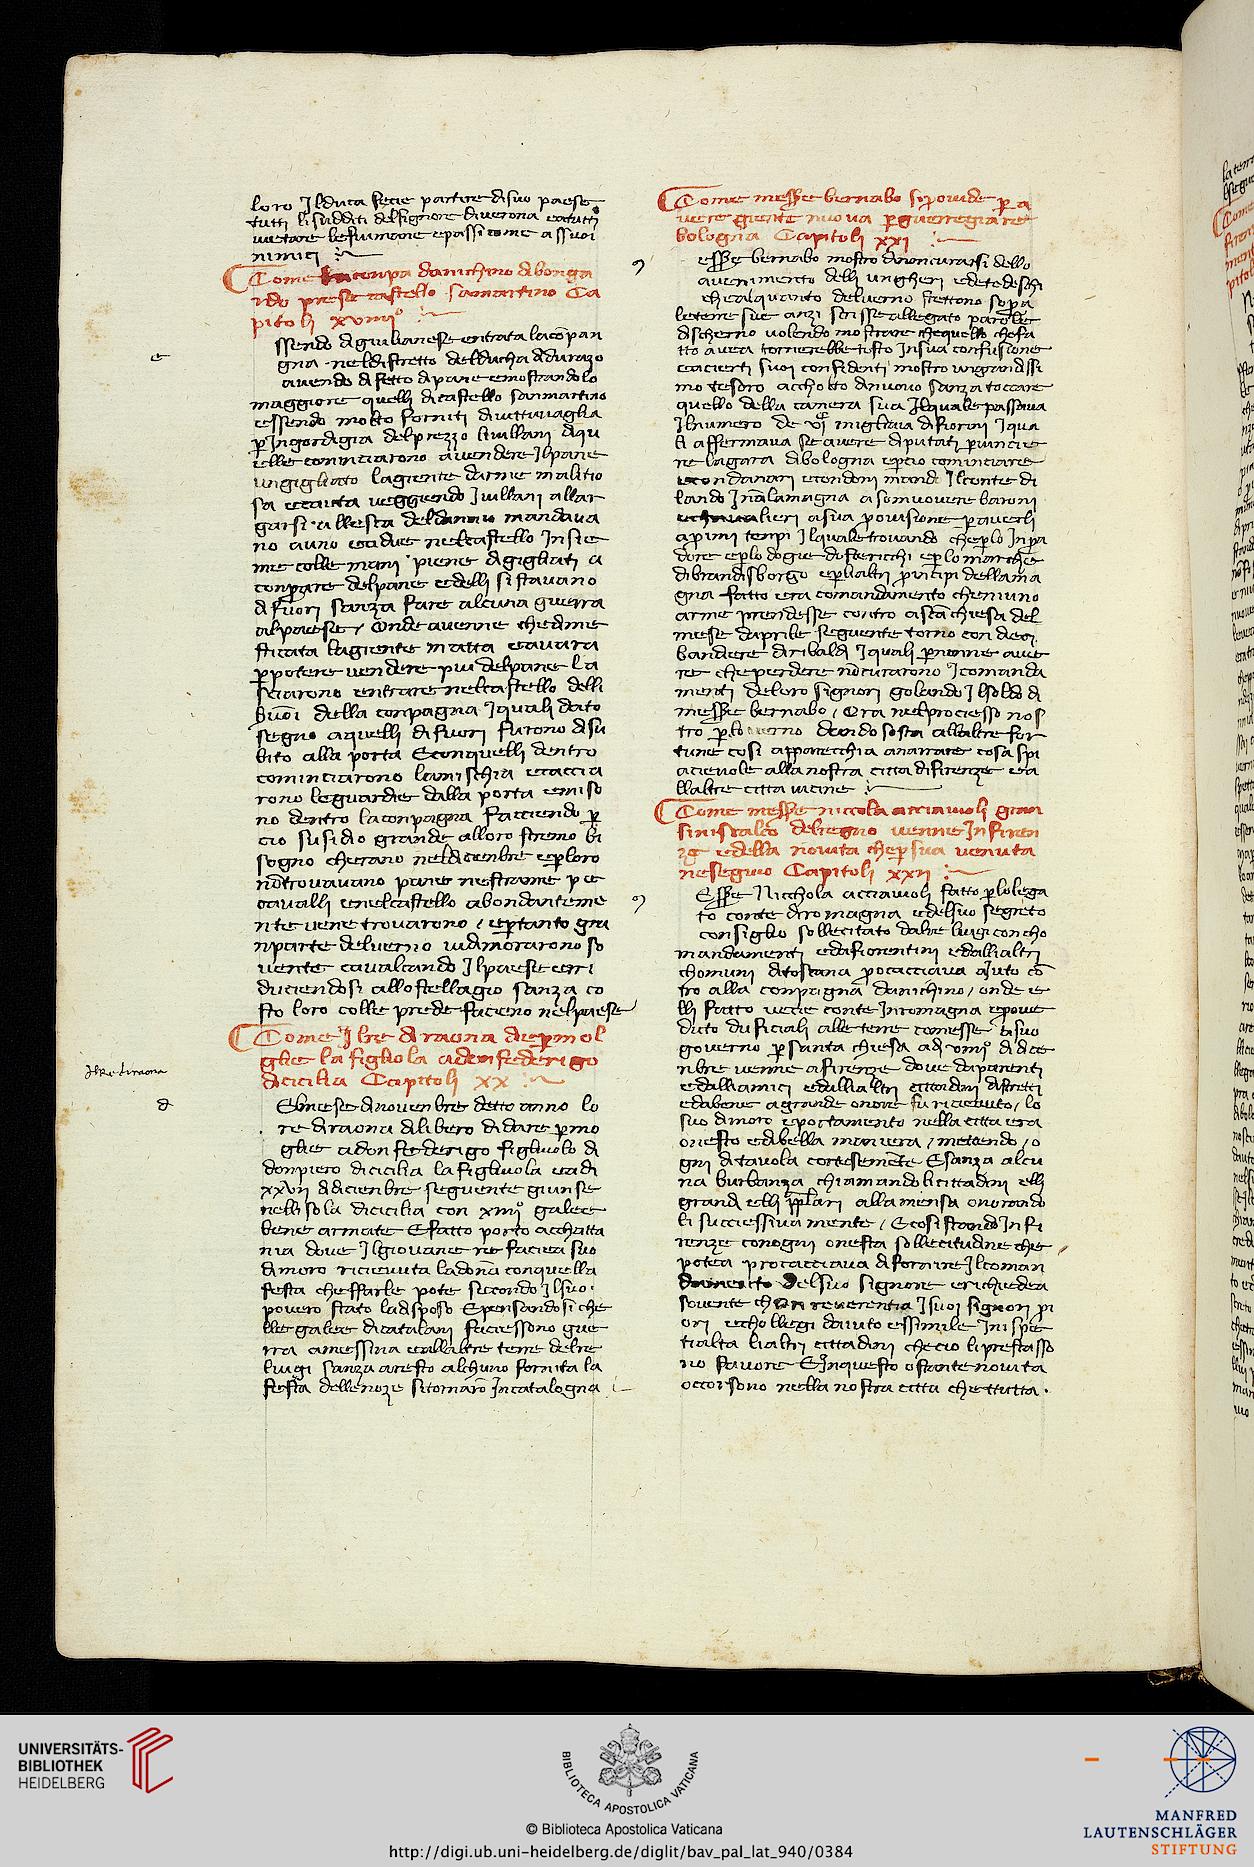 loro Il duca fecie partire di suo paese
tutti li sudditi del signore di verona e a tutti
vietare le fiumane e passi come a suoi
nimici
Come la conpa danichino di bonga
rdo prese castello samartino Ca
pitoli xviiii°
ssendo di giulianese entrata la conpan
gna nel distretto del ducha di durazo
avendo difetto di pane e mostrandolo
maggiore quelli di castello sanmartino
essendo molto forniti di vittuvaglia
per Ingordigia del prezzo li villani di qu
elle cominciarono a vendere Il pane
un gigliato la giente darme malitio
sa e cauta veggendo I villani allar
garsi allesca del danaio mandava
no a uno e a due nel castello Insie
me colle mani piene di gigliati a
conperare del pane ed elli si stavano
di fuori sanza fare alcuna guerra
al paese / Onde avenne che dime
sticata la giente matta e avara
per potere vendere piu del pane la
sciarono entrare nel castello delli
buoni della conpagna I quali dato
segno a quelli di fuori furono di su
bito alla porta E con quelli dentro
cominciarono la mischia e caccia
rono le guardie dalla porta e miso
no dentro la conpagna facciendo per
cio susidio grande al loro stremo bi
sogno cherano nel dicenbre e per loro
non trovavano pane ne strame pe
cavalli e nel castello abondanteme
nte vene trovarono / e pertanto gra
n parte del verno vi dimorarono so
vente cavalcando Il paese e ri
duciendosi allostellagio sanza co
sto loro colle prede facieno nel paese
Come Il re di raona die per mol
glie la figliola a don federigo
di cicilia Capitoli xx
El mese di novenbre detto anno lo
re di raona dilibero di dare per mo
glie a don federigo figliuolo di
don piero di cicilia la figliuola e a di
xxvii di dicienbre seguente giunse
nell isola di cicilia con xiiii° galee
bene armate E fatto porto a cchatta
nia dove Il giovane re faciea suo
dimoro ricievuta la donna con quella
festa che ffarle pote sicondo Il suo
povero stato la disposo E pensandosi che
lle galee di catalani faciessono gue
rra a messina e allaltre terre del re
luigi sanza aresto alchuno fornita la
festa delle noze si tornaro In catalogna
Il Re di raona
e
d
Come messer bernabo si provide per a
vere giente nuova per guerregiare
bologna Capitoli xxi
esser bernabo mostro di non curarsi dello
avenimento delli ungheri e de tedeschi
che alquanto del verno stettono sopra
le terre sue anzi scrisse allegato parole
di scherno volendo mostrare che quello che fa
tto avea tornerebbe tosto In sua confusione
e a cierti suoi confidenti mostro un grandissi
mo tesoro accholto di nuovo sanza toccare
quello della camera sua Il quale passava
Il numero de vi migliaia di fiorini I qua
li affermava se avere diputati per vincie
re la gara di bologna e percio cominciare
con danari e con doni mando Il conte di
lando In alamagna a somuovere baroni
e chavalieri a sua provisione per averli
a primi tenpi Il quale trovando che per lo Inpa
dore e per lo dogie dosterichi e per lo marchese
di brandisborgo e per li altri principi dellama
gna fatto era comandamento che niuno
arme prendesse contro a santa chiesa del
mese daprile seguente torno con dieci
bandiere di ribaldi I quali per nonne ave
re che perdere non curarono I comanda
menti de loro signori golando Il soldo di
messer bernabo / Ora nel prociesso nos
tro per lo verno dando sosta allaltre for
tune cosi apparecchia a narrare cosa spi
acievole alla nostra citta di firenze e a
llaltre citta vicine
Come messer niccola acciaiuoli gran
siniscalco del regno venne In firen
ze e della novita che per sua venuta
ne seguio Capitoli xxii
Esser Nicchola acciaiuoli fatto per lo lega
to conte di romagna e del suo segreto
consiglio sollecitato dal re luigi con cho
mandamenti e da fiorentini e dalli altri
chomuni di toscana procacciava aiuto con
tro alla conpagna danichino / onde e
lli fatto vecie conte In romagna e prove
duto duficiali alle terre comesse a suo
governo per santa chiesa a di viiii° di dice
nbre venne a firenze dove da parenti
e dalli amici e dalli altri cittadini distretti
e da bene a grande onore fu ricievuto / lo
suo dimoro e portamento nella citta era
onesto e di bella maniera / mettendo / o
gni di tavola cortesemente E sanza alcu
na burbanza chiamando li cittadini elli
grandi elli popolari alla mensa onorando
li succiessivamente / E cosi stando In fi
renze con ogni onesta sollecitudine che
potea procacciava di fornire Il coman
damento del suo signore e richiedea
sovente chon reverentia I suoi signori pri
ori e chollegi daiuto e ssimile In ispe
tialta li altri cittadini che cio li prestasso
no favore E In questo ostante novita
occorsono nella nostra citta che ttutta
UNIVERSITÄTS-
BIBLIOTHEK
HEIDELBERG
BIBLIOTECA APOSTOLICA VATICANA
© Biblioteca Apostolica Vaticana
http://digi.ub.uni-heidelberg.de/diglit/bav_pal_lat_940/0384
MANFRED
LAUTENSCHLÄGER
STIFTUNG